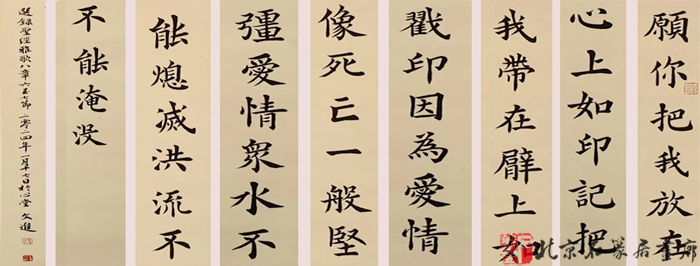 願你把我放在
心上如印記把
我帶在臂上如
戳印因為愛情
像死亡一般堅
彊愛情眾水不
能熄滅洪流不
不能淹没
選録聖經雅歌八章六至七節 二零二四年一月十七日於心堂 文進